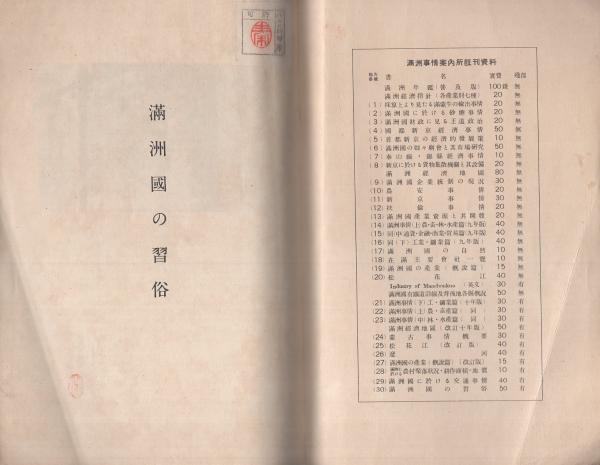 滿洲國の習俗
滿洲事情案內所旣刊資料
書名 實費 殘部
滿洲年鑑（普及版） 100錢 無
滿洲經濟指針（各產業別七種） 20 無
(2) 滿洲國に於ける砂糖事情 20 無
(3) 滿洲國財政に見る王道政治 20 無
(4) 國都新京經濟事情 50 無
(5) 首都新京の經濟的發展策 10 無
(6) 滿洲國の娘々廟會と其市場硏究 50 無
(7) 泰山縣・錦縣經濟事情 10 無
(8) 新京に於ける貨物集散機關と其設備 20 無
滿洲經濟地圖 80 無
(9) 滿洲國企業統制の現況 30 無
(10) 農安事情 20 無
(11) 新京事情 30 無
(12) 扶餘事情 20 無
(13) 滿洲國產業資源と其開發 20 無
(14) 滿洲事情（上）農・畜・林・水產篇（九年版） 40 無
(15) 同（中）通貨・金融・商業・貿易篇（九年版） 40 無
(16) 同（下）工業・鑛業篇（九年版） 40 無
(17) 滿洲國の自然 10 無
(18) 在滿主要會社一覽 10 無
(19) 滿洲國の產業（槪說篇） 15 無
(20) 松花江 40 無
Industry of Manchoukuo（英文） 30 有
50 有
(21) 滿洲事情（下）工・鑛業篇（十年版） 30 有
(22) 滿洲事情（上）農・畜產篇（同） 30 有
(23) 滿洲事情（中）林・水產篇（同） 30 有
滿洲經濟地圖（改訂十年版） 50 有
(24) 蒙古事情槪要 30 有
(25) 松花江（改訂版） 40 有
(26) 遼河 40 有
(27) 滿洲國の產業（槪說篇）（改訂版） 15 有
(28) 農村聚落狀況・耕作面積・地價 10 有
(29) 滿洲國に於ける交通事情 40 有
(30) 滿洲國の習俗 50 有